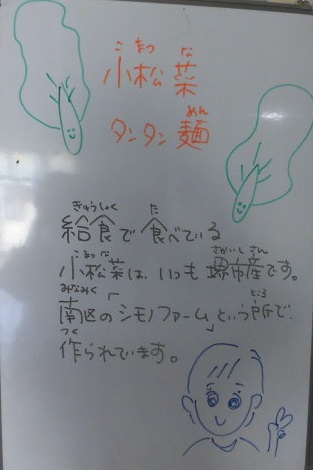 こまつな
小松菜
めん
タンタン麺
きゅうしょく た
給食で食べている
こまつな さかいし さん
小松菜は、いつも堺市産です。
みなみく ところ
南区の「シモノファーム」という所で、
つく
作られています。